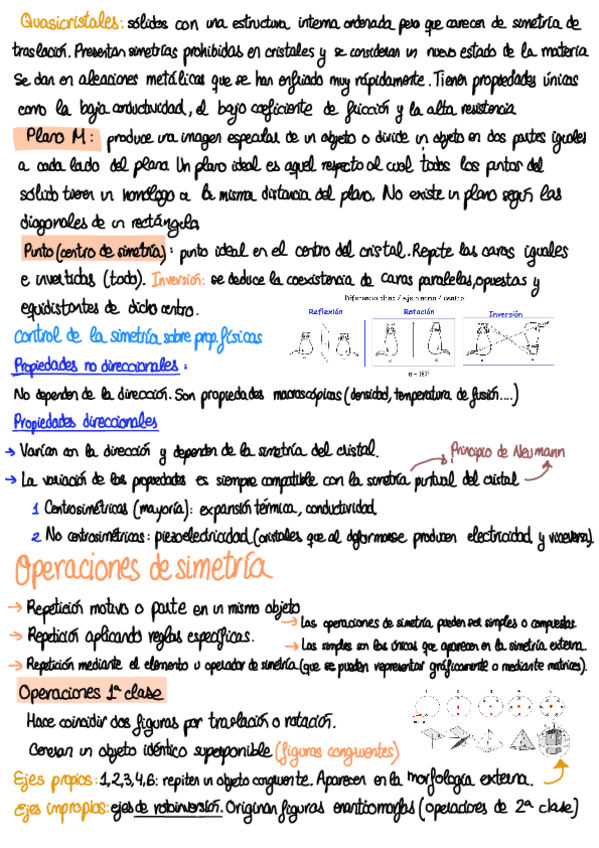 Quasicristales: sólidos con una estructura interna ordenada pero que carecen de simetría de
traslación. Presentan simetrías prohibidas en cristales y se consideran un nuevo estado de la materia
Se dan en aleaciones metálicas que se han enfriado muy rápidamente. Tienen propiedades únicas
como la baja conductividad, el bajo coeficiente de fricción y la alta resistencia
Plano M: produce una imagen especular de un objeto o divide un objeto en dos partes iguales
a cada lado del plano. Un plano ideal es aquel respecto al cual todos los puntos del
sólido tienen un homólogo a la misma distancia del plano. No existe un plano según las
diagonales de un rectángulo.
Punto (centro de simetría): punto ideal en el centro del cristal. Repite las caras iguales
e invertidas (todo). Inversión: se deduce la coexistencia de caras paralelas, opuestas y
equidistantes de dicho centro.
Reflexión Rotación Inversión
α = 180°
Control de la simetría sobre prop. físicas
Propiedades no direccionales:
No dependen de la dirección. Son propiedades macroscópicas (densidad, temperatura de fusión....)
Propiedades direccionales
→ Varían con la dirección y dependen de la simetría del cristal.
Principio de Neumann
→ La variación de las propiedades es siempre compatible con la simetría puntual del cristal
1 Centrosimétricas (mayoría): expansión térmica, conductividad
2 No centrosimétricas: piezoelectricidad (cristales que al deformarse producen electricidad y viceversa).
Operaciones de simetría
→ Repetición motivo o parte en un mismo objeto
→ Las operaciones de simetría pueden ser simples o compuestas.
→ Repetición aplicando reglas específicas.
→ Las simples son las únicas que aparecen en la simetría externa.
→ Repetición mediante el elemento u operador de simetría (que se pueden representar gráficamente o mediante matrices).
Operaciones 1ª clase
Hace coincidir dos figuras por traslación o rotación.
Generan un objeto idéntico superponible (figuras congruentes)
Ejes propios: 1,2,3,4,6: repiten un objeto congruente. Aparecen en la morfología externa.
Ejes impropios: ejes de rotoinversión. Originan figuras enantiomorfas (operadores de 2ª clase)